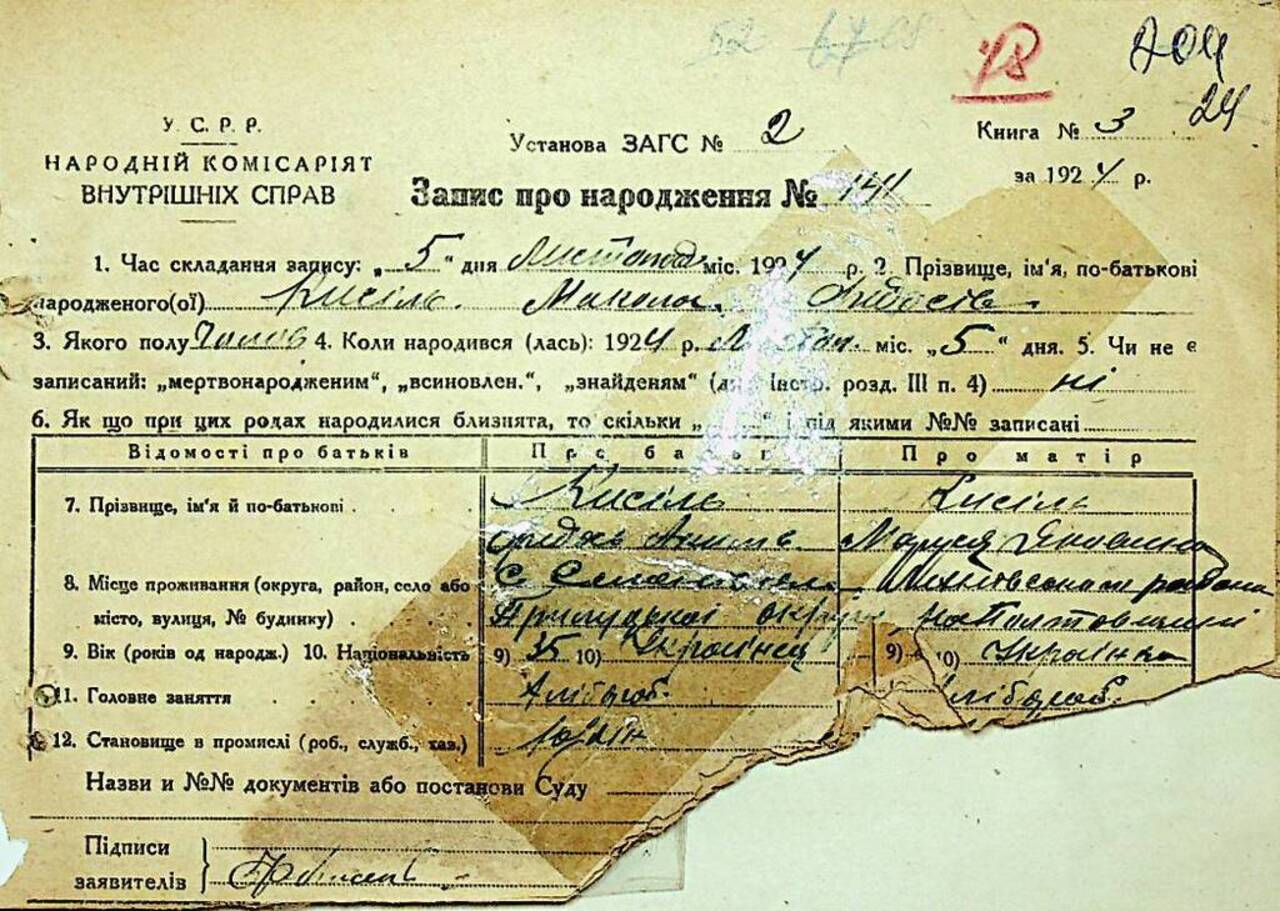 204
24
У. С. Р. Р.
НАРОДНІЙ КОМІСАРІЯТ
ВНУТРІШНІХ СПРАВ
Установа ЗАГС № 2
Книга № 3
за 1924 р.
Запис про народження № 144
1. Час складання запису: „ 5 “ дня Листопада міс. 1924 р. 2. Прізвище, ім'я, по-батькові
народженого(ої) Кисіль Микола
3. Якого полу Чолов 4. Коли народився (лась): 1924 р. Листоп. міс. „5“ дня. 5. Чи не є
записаний: „мертвонародженим“, „всиновлен.“, „знайденям“ (див. Інстр. розд. III п. 4) ні
6. Як що при цих родах народилися близнята, то скільки „ “ і під якими №№ записані
Відомості про батьків Про батька Про матір
7. Прізвище, ім'я й по-батькові Кисіль Кисіль
Маруся Яковлівна
8. Місце проживання (округа, район, село або С.
місто, вулиця, № будинку) Прилуцької округи на Полтавщині
9. Вік (років од народж.) 10. Національність 9) 35 10) Українець 9) 10) Українка
11. Головне заняття Хлібороб. хлібороб.
12. Становище в промислі (роб., служб., хаз.) Хазяїн
Назви и №№ документів або постанови Суду
Підписи
заявителів